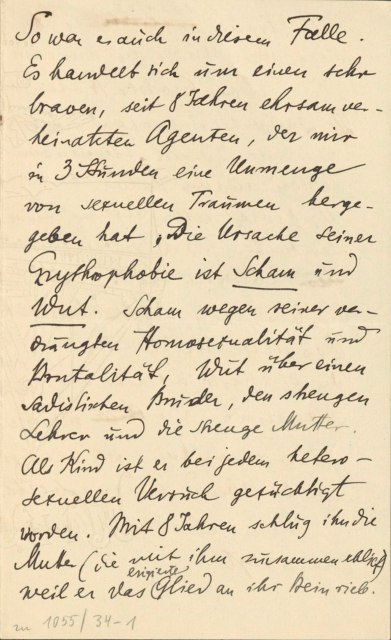 So war es auch in diesem Falle.
Es handelt sich um einen sehr
braven, seit 8 Jahren ehrsam ver-
heirateten Agenten, der mir
in 3 Stunden eine Unmenge
von sexuellen Traumen herge-
geben hat. Die Ursache seiner
Erythrophobie ist Scham und
Wut. Scham wegen seiner ver-
drängten Homosexualität und
Brutalität, Wut über einen
sadistischen Bruder, den strengen
Lehrer und die strenge Mutter.
Als Kind ist er bei jedem hetero-
sexuellen Versuch gezüchtigt
worden. Mit 8 Jahren schlug ihn die
Mutter (die mit ihm zusammen schlief)
erigierte
weil er das Glied an ihr Bein rieb.
zu 1055/34-1